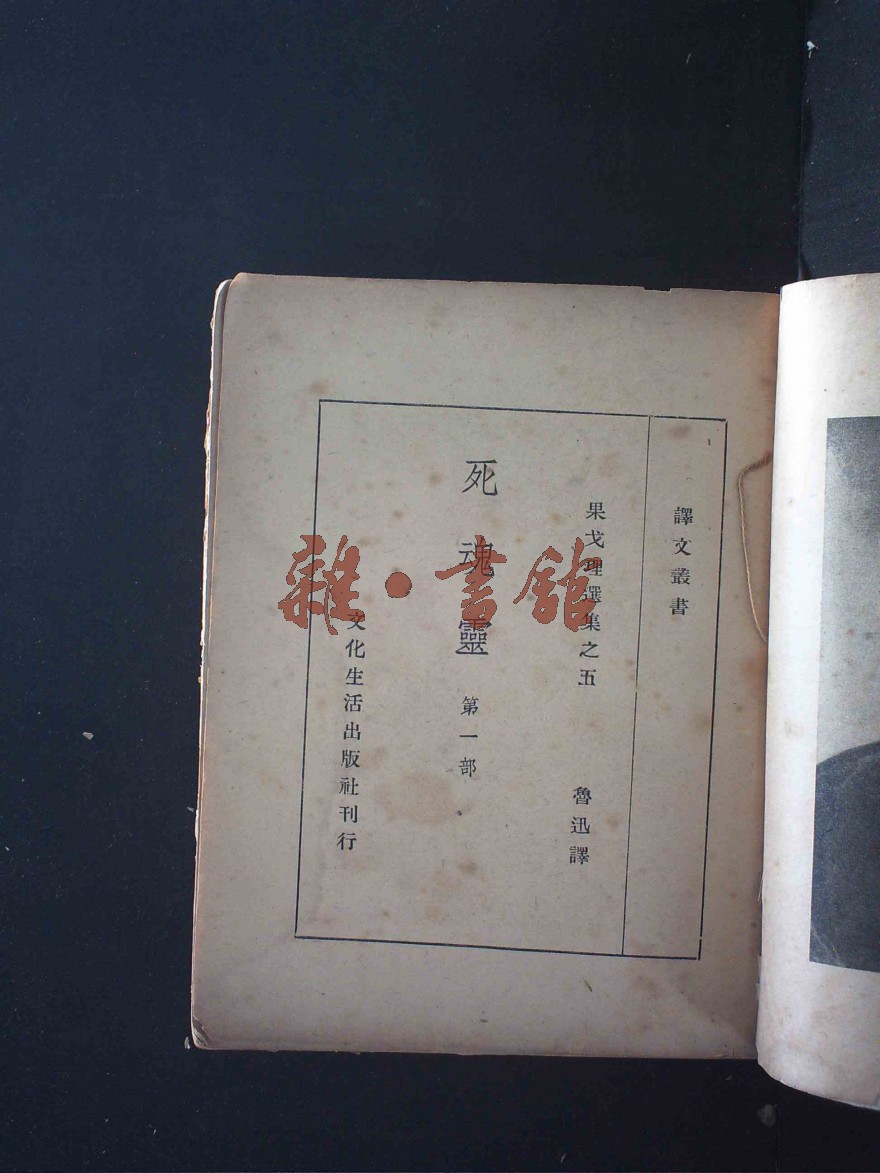 譯文叢書
果戈理選集之五
魯迅譯
死魂靈
第一部
文化生活出版社刊行
雜·書館